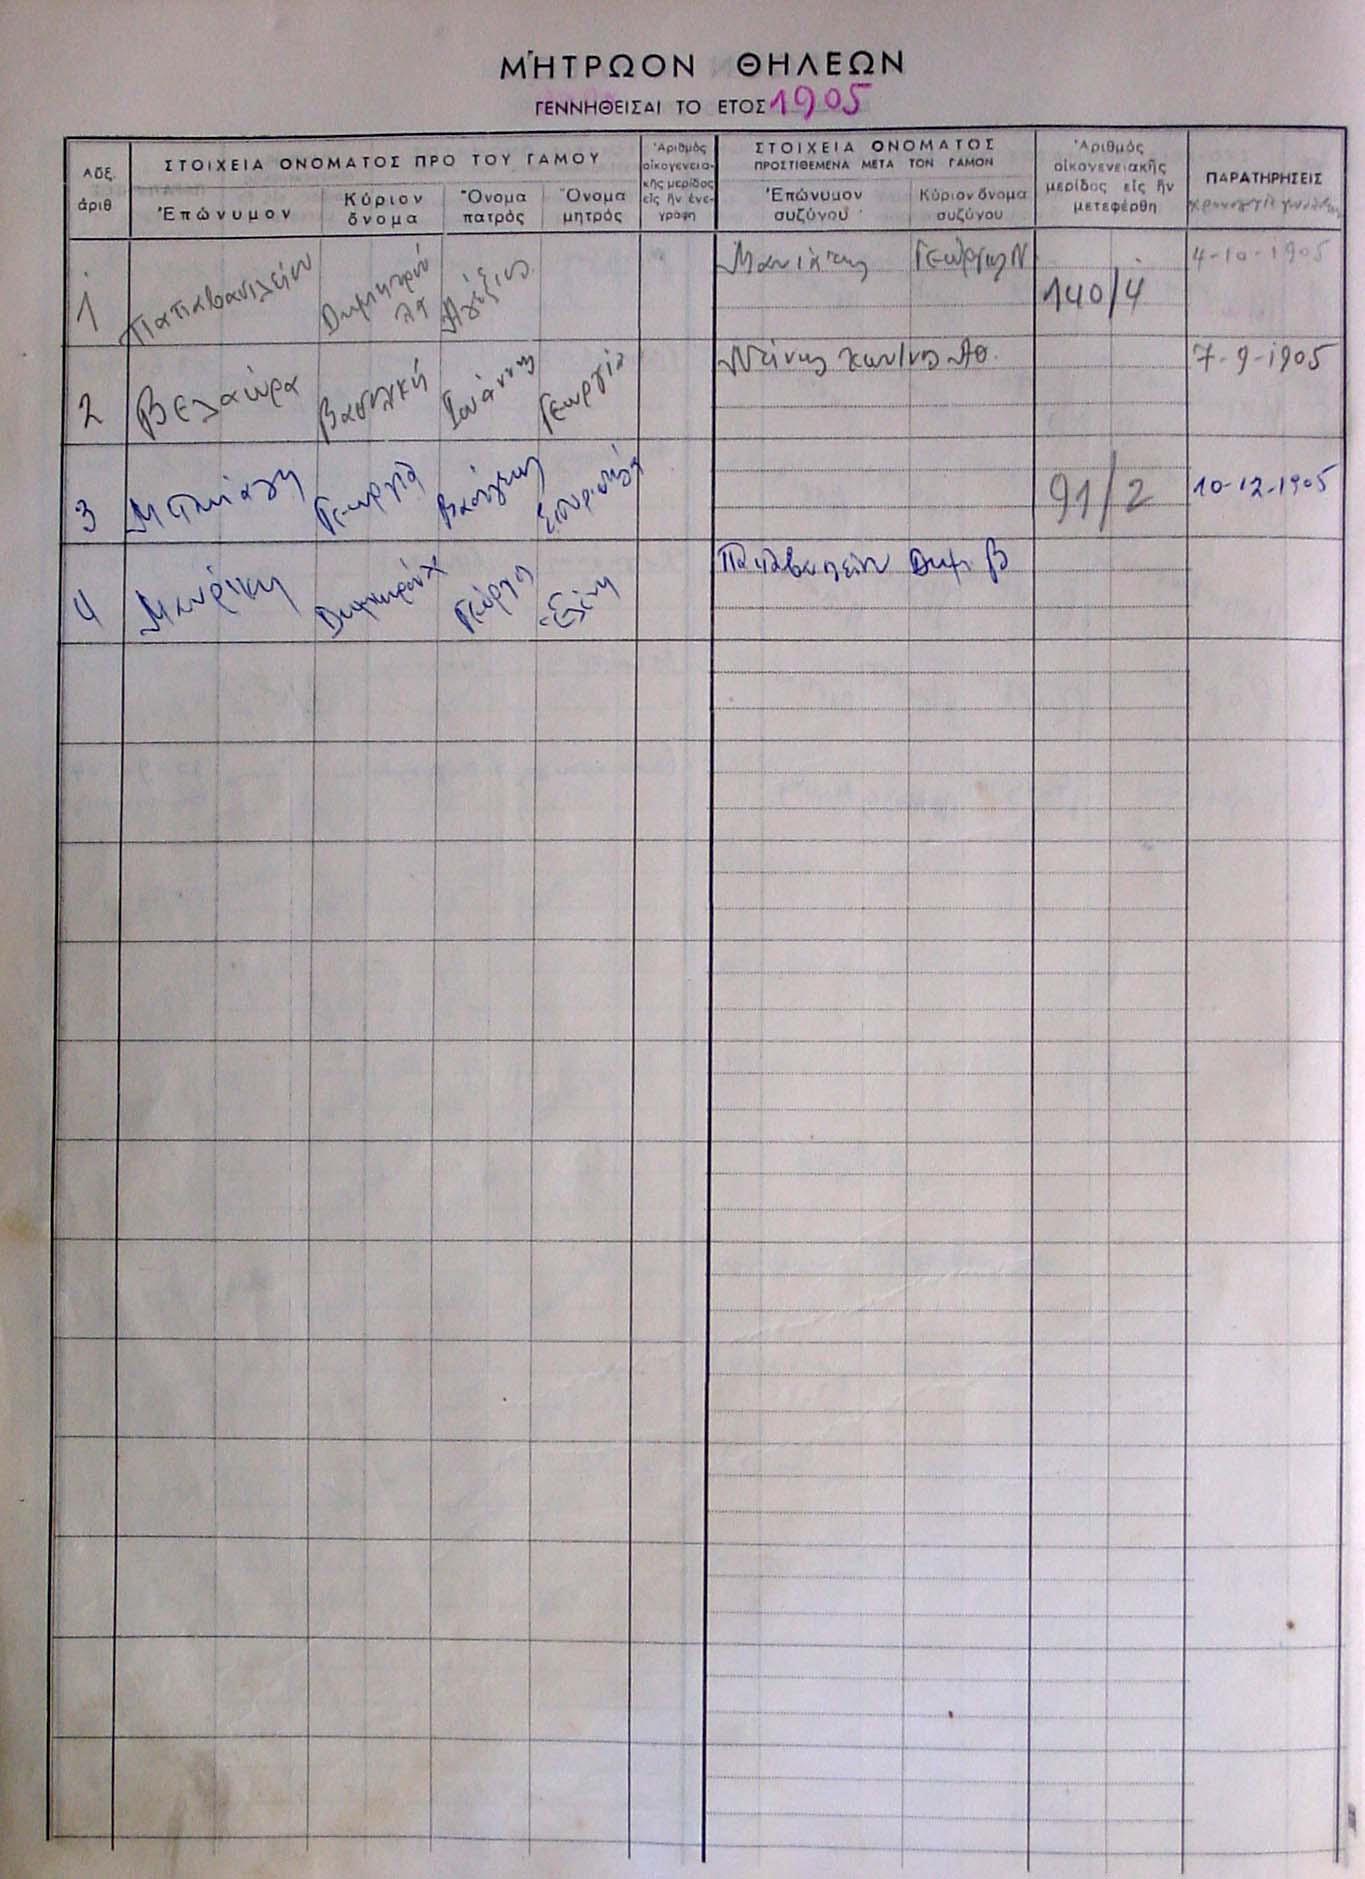 ΜΗΤΡΩΟΝ ΘΗΛΕΩΝ
ΓΕΝΝΗΘΕΙΣΑΙ ΤΟ ΕΤΟΣ 1905
Αὔξ. ἀριθ
ΣΤΟΙΧΕΙΑ ΟΝΟΜΑΤΟΣ ΠΡΟ ΤΟΥ ΓΑΜΟΥ
Ἐπώνυμον
Κύριον ὄνομα
Ὄνομα πατρός
Ὄνομα μητρός
Ἀριθμὸς οἰκογενειακῆς μερίδος εἰς ἣν ἐνεγράφη
ΣΤΟΙΧΕΙΑ ΟΝΟΜΑΤΟΣ
ΠΡΟΣΤΙΘΕΜΕΝΑ ΜΕΤΑ ΤΟΝ ΓΑΜΟΝ
Ἐπώνυμον συζύγου
Κύριον ὄνομα συζύγου
Ἀριθμὸς οἰκογενειακῆς μερίδος εἰς ἣν μετεφέρθη
ΠΑΡΑΤΗΡΗΣΕΙΣ
1 Παπαβασιλείου Δημητρούλα Γεώργιος Ν 140/4 4-10-1905
2 Βασιλική Ἰωάννης Γεωργία 7-9-1905
3 Γεωργία Βασίλειος 91/2 10-12-1905
4 Γεώργιος Ἑλένη Παπαβασιλείου Δημ. Β